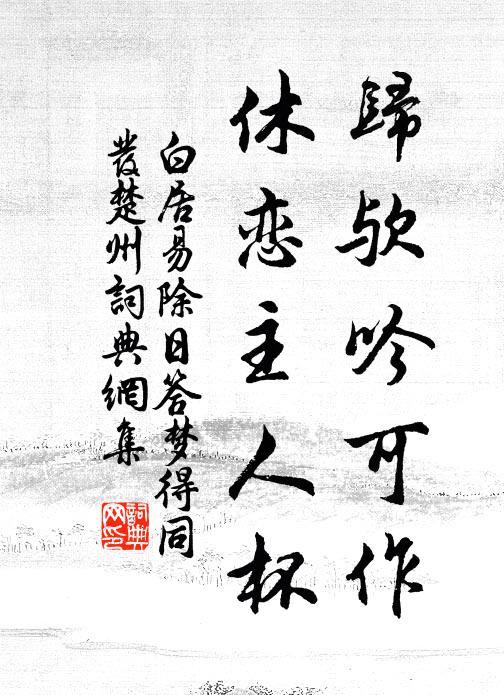 歸欤吟可作
休恋主人杯
白居易除日答梦得同
發楚州詞典網集
詞典
网印